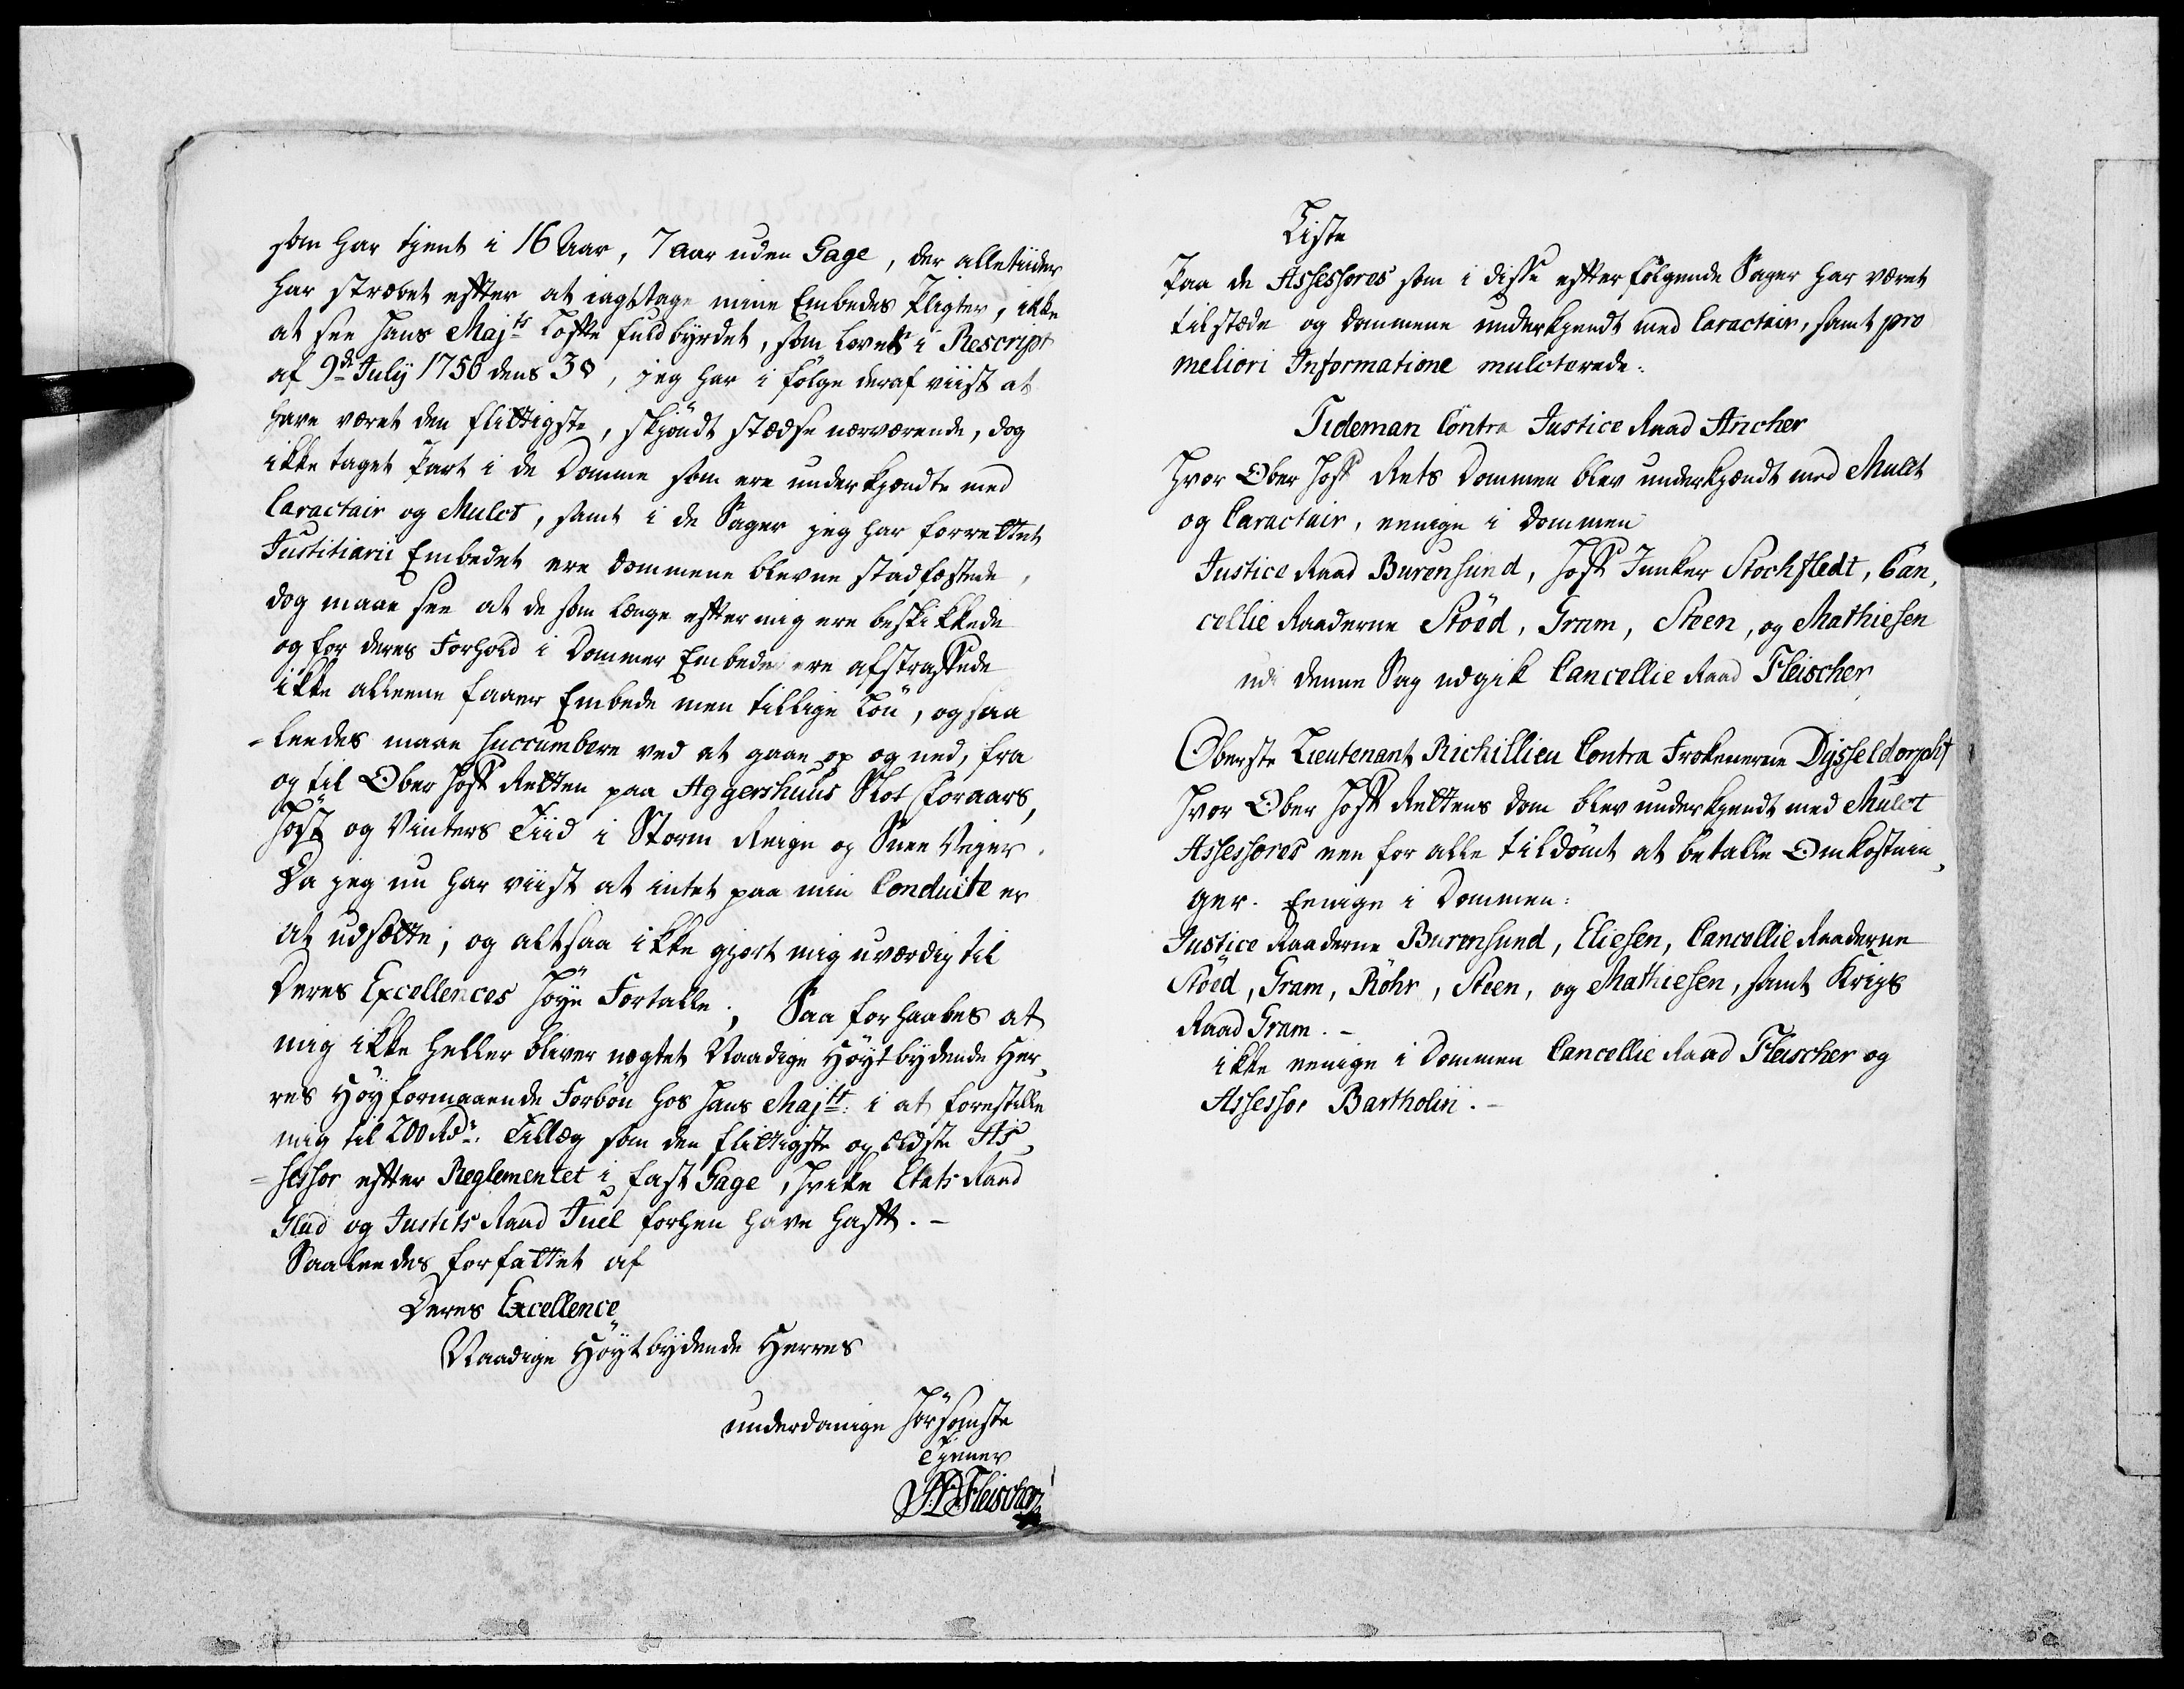 som har tient i 16 Aar, 7 aar uden Gage, der alletiider
har stræbet effter at iagttage mine Embedes Pligter, ikke
at see Hans Majts Løffte fuldbyrdet, som lovet i Rescript
af 9de July 1756 dens 3 §, jeg har i følge deraf viist at
have været den flittigste, skjøndt stædse nærværende, dog
ikke taget Part i de Domme som ere underkjendte med
Caractair og Mulct, samt i de Sager jeg har forrettet
Justitiarii Embedet ere Dommene blevne stadfæstede,
dog maae see at de som længe effter mig ere beskikkede
og for deres Forhold i Dommer Embedet ere afstraffede
ikke alleene faaer Embede men tillige Løn, og saa
-leedes maae succumbere ved at gaae op og ned, fra
og til Ober Hoff Retten paa Aggershuus Slot Foraars,
Høst og Vinters Tiid i Storm Reign og Snee Vejer.
Da jeg nu har viist at intet paa min Conduite er
at udsætte; og altsaa ikke gjort mig uværdig til
Deres Excellences Høye Fortalle; Saa forhaabes at
mig ikke heller bliver nægtet Naadige Høytbydende Her,
res Høyformaaende Forbøn hos Hans Majtt: i at forestille
mig til 200 Rdr. Tillæg som den flittigste og ældste As,
-sessor effter Reglementet i fast Gage, hvilke Etats Raad
Glud og Justits Raad Juel forhen have hafft. -
Saaleedes forfattet af
Deres Excellence
Naadige Høytbydende Herres
underdanige Hørsomste
Tjener
Fleischer
Liste
Paa de Assessores som i disse effterfølgende Sager har været
tilstæde og Dommene underkjendt med Caractair, samt pro
meliori Informatione mulcterede.
Tideman Contra Justice Raad Ancher
Hvor Ober Hoff Rets Dommen blev underkjændt med Mulct
og Caractair, eenige i Dommen
Justice Raad Burensund, Hoff Junker Stochfledt, Can,
cellie Raaderne Støed, Gram, Steen, og Mathiesen
udi denne Sag udgik Cancellie Raad Fleischer
Oberste Lieutenant Richillieu Contra Frøkenerne Dysseldorpht
Hvor Ober Hoff Rettens Dom blev underkjendt med Mulct
Assessores een for alle tildømt at betalle Omkostnin,
ger. Eenige i Dommen:
Justice Raaderne Burensund, Eliesen, Cancellie Raaderne
Støed, Gram, Röhr, Steen, og Mathiesen, samt Krigs
Raad Gram. -
ikke eenige i Dommen Cancellie Raad Fleischer og
Assessor Bartholin. -